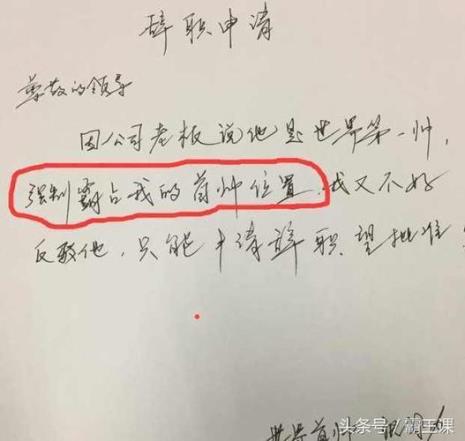 辞职申请
尊敬的领导
因公司老板说他是世界第一帅,
强制霸占我的首帅位置.我又不好
反驳他,只能申请辞职望批准
世界首帅
头条号/霸王课